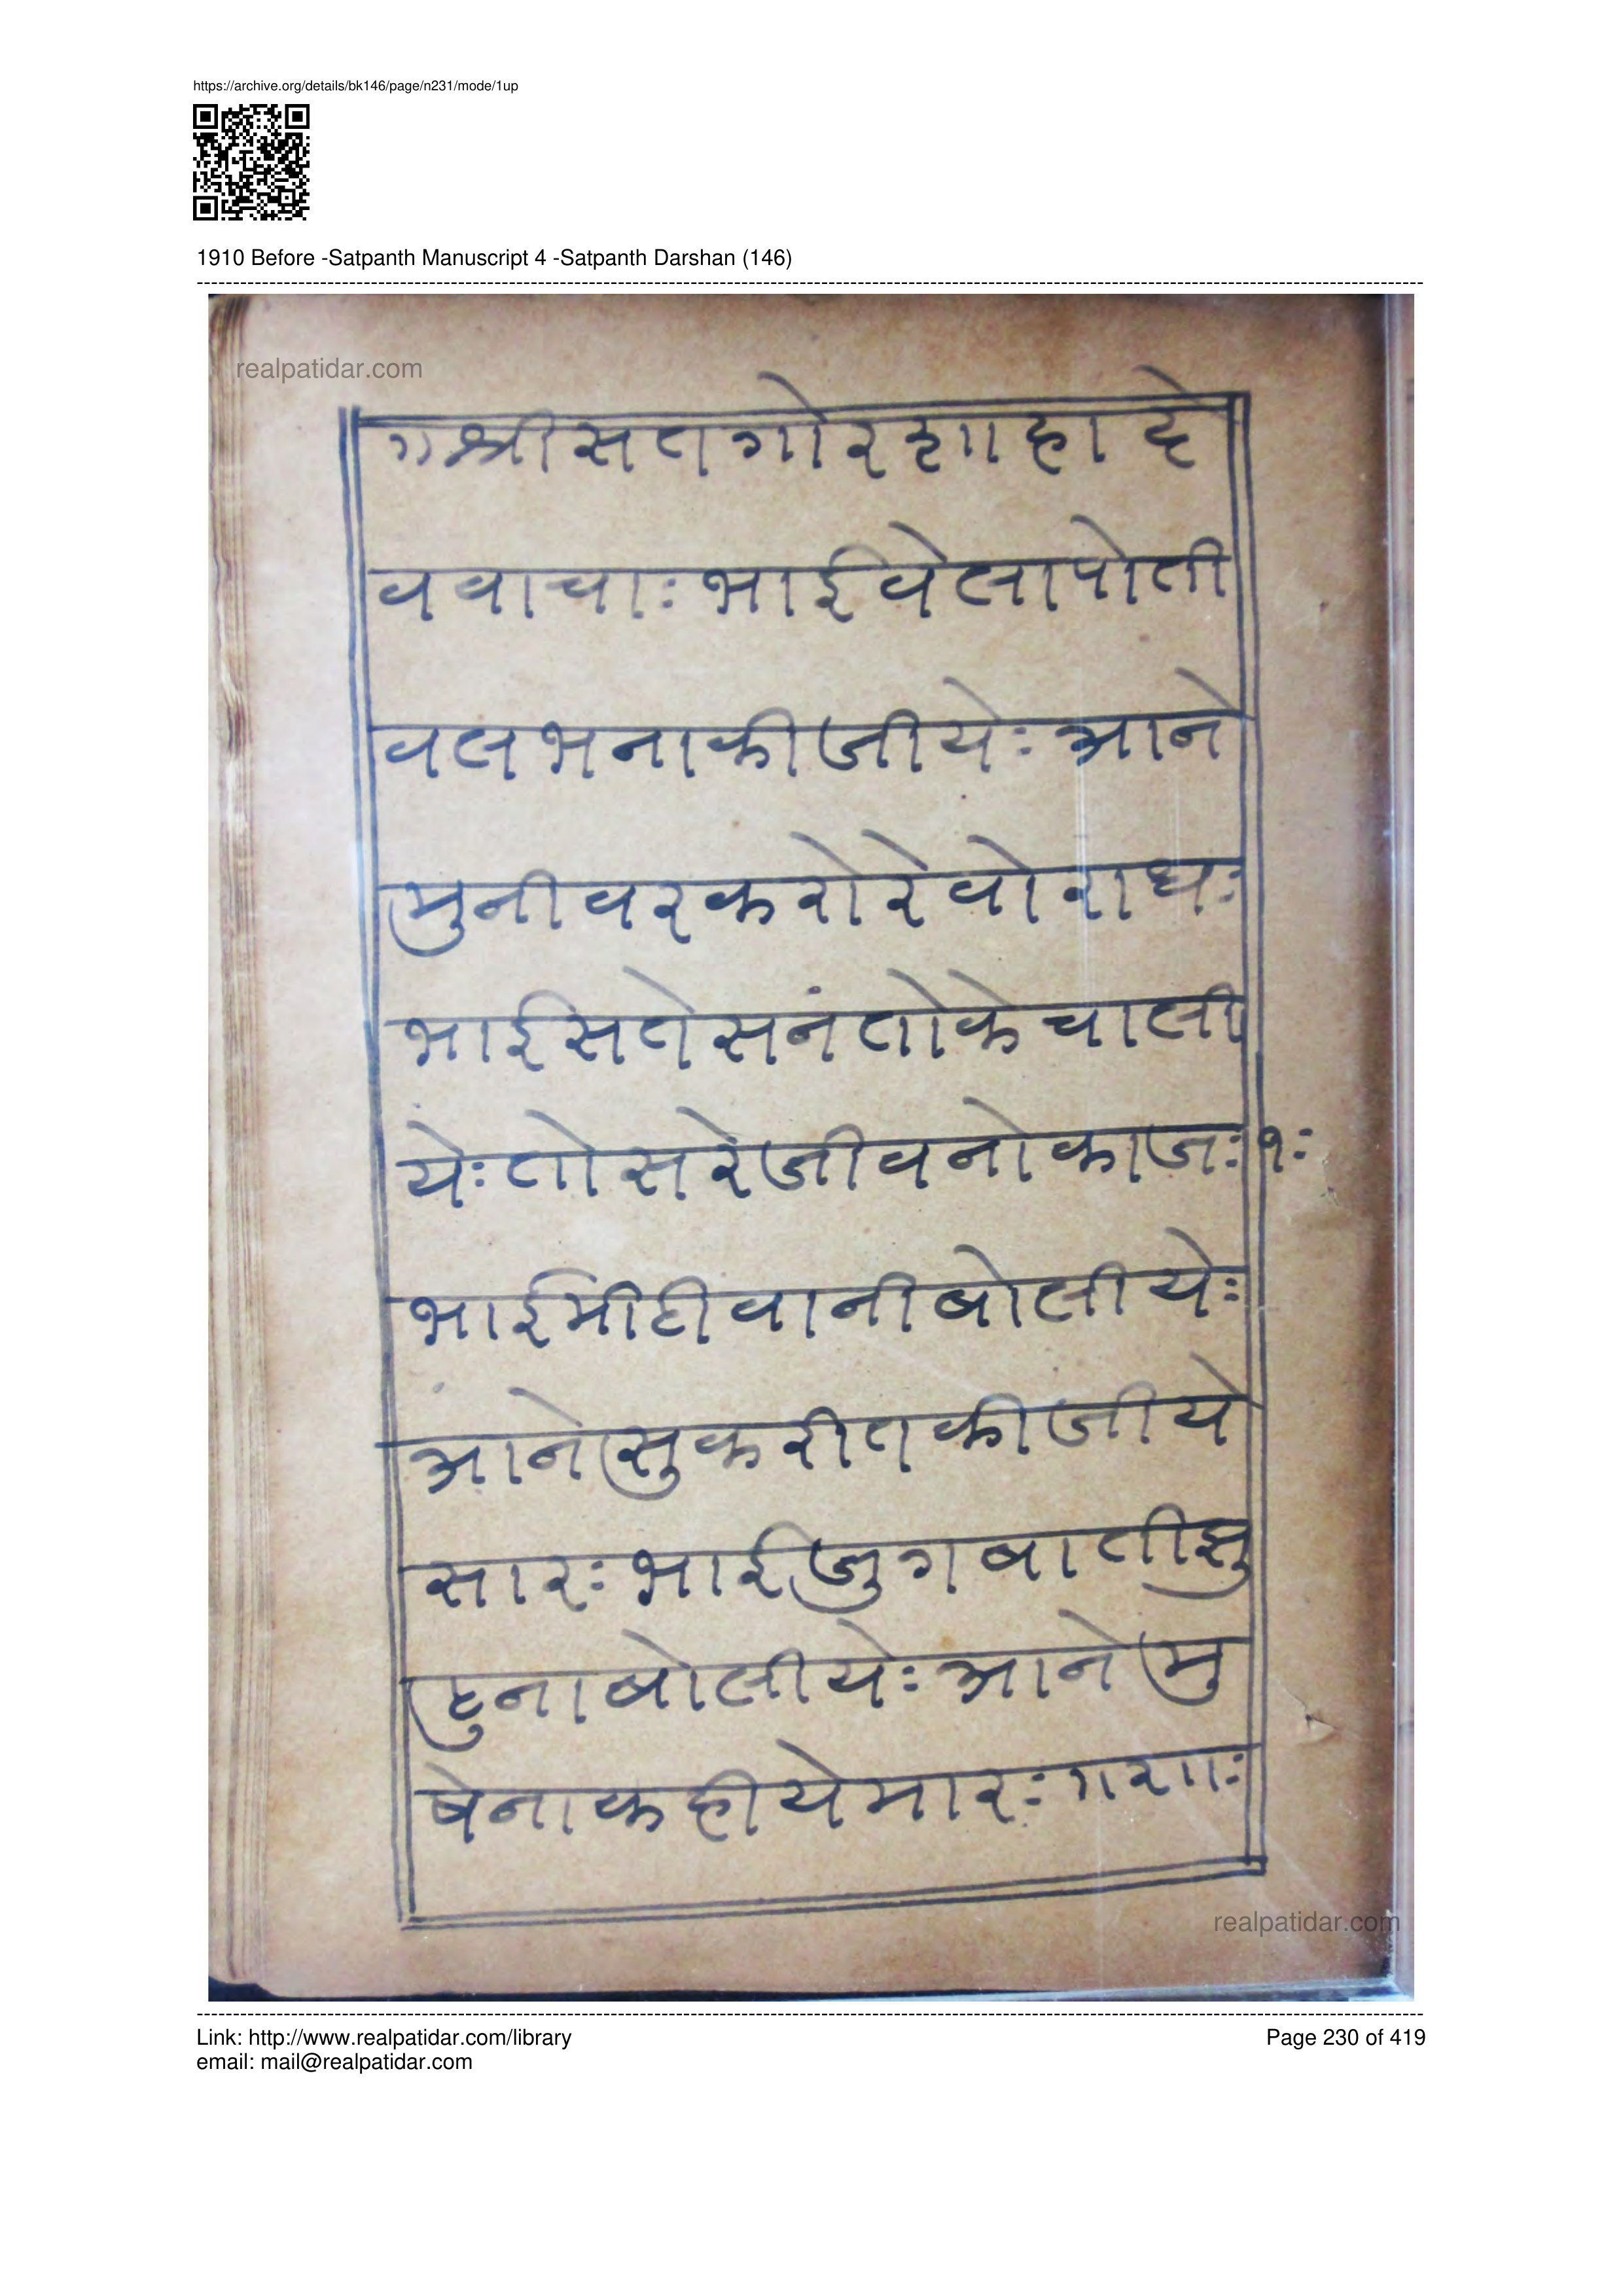 https://archive.org/details/bk146/page/n231/mode/1up
1910 Before -Satpanth Manuscript 4 -Satpanth Darshan (146)
realpatidar.com
ग श्री स त गो र शा हा दे
व वा चाः भा ई वे ला पो ती
व ल भ ना की जी येः आ ने
मु नी व र क रो रे वो रा धः
भा ई स ते स नं तो के चा ली
येः तो स रे जी व नो का जः १ः
भा ई मी ठी वा नी बो ली येः
आ ने सु क री त की जी ये
सा रः भा ई जु ग बा ती झु
हु ना बो ली येः आ ने मु
बे ना क ही ये मा रः
realpatidar.com
Link: http://www.realpatidar.com/library
Page 230 of 419
email: mail@realpatidar.com